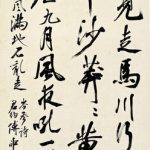 見走馬川行
平沙莽莽黃
九月風夜吼一
風滿地石亂走
岑參詩